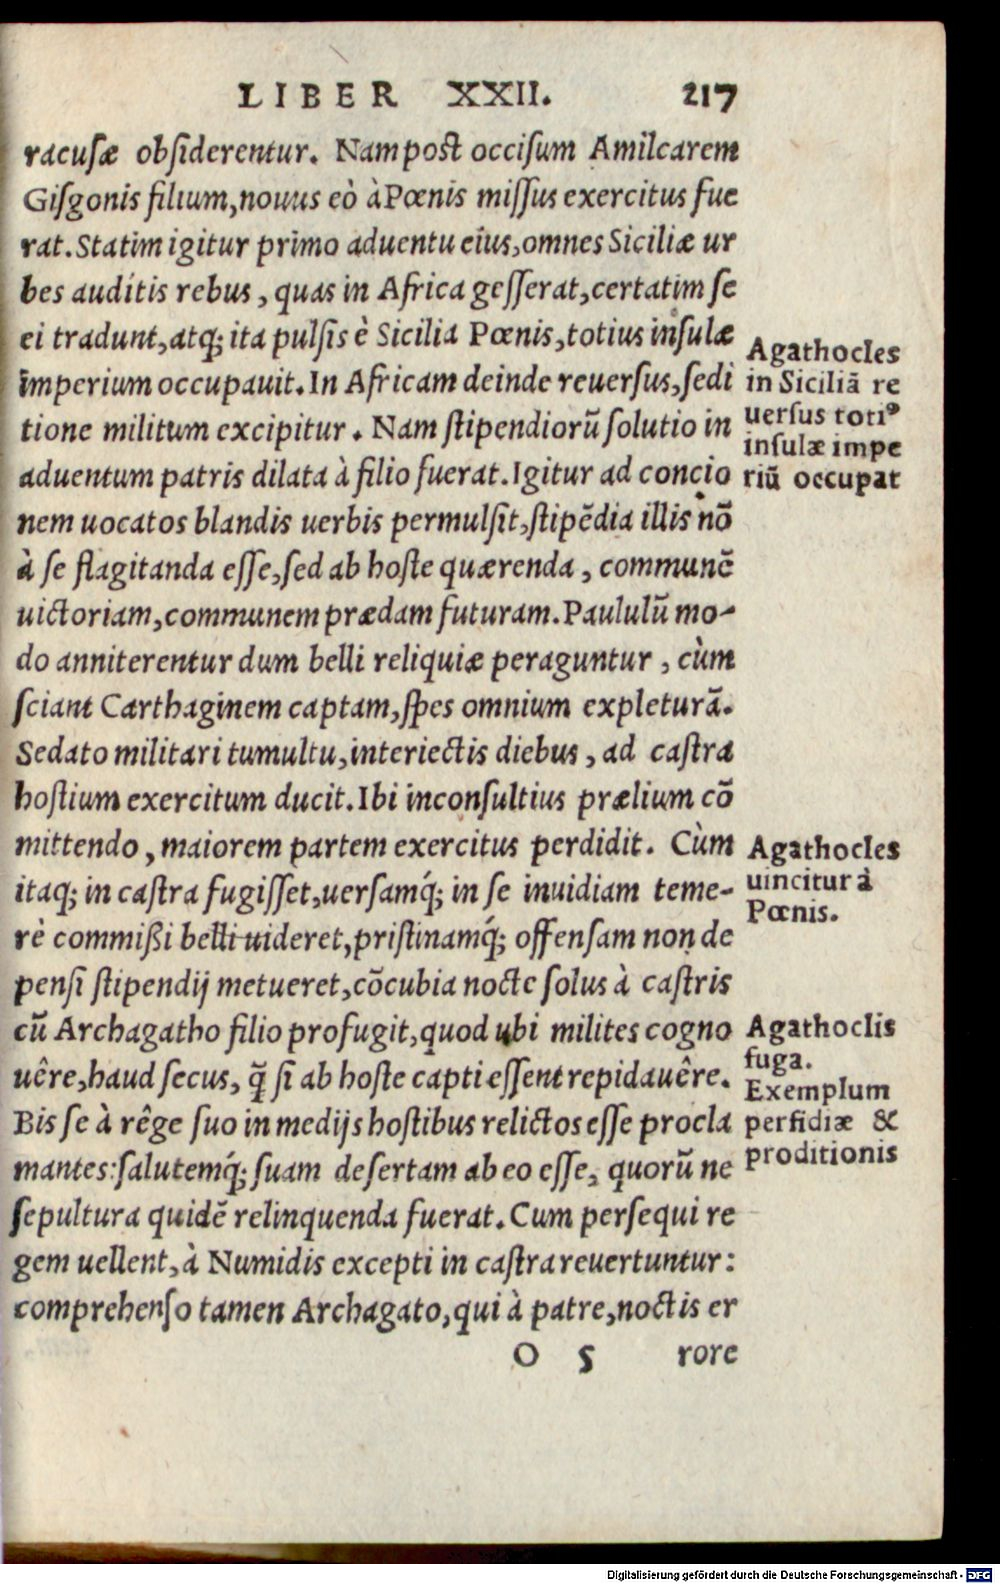 LIBER XXII. 217
racuſæ obſiderentur. Nam poſt occiſum Amilcarem
Giſgonis filium, nouus eò à Pœnis miſſus exercitus fue
rat. Statim igitur primo aduentu eius, omnes Siciliæ ur
bes auditis rebus, quas in Africa geſſerat, certatim ſe
ei tradunt, atq; ita pulſis è Sicilia Pœnis, totius inſulæ
imperium occupauit. In Africam deinde reuerſus, ſedi
tione militum excipitur. Nam ſtipendiorū ſolutio in
aduentum patris dilata à filio fuerat. Igitur ad concio
nem uocatos blandis uerbis permulſit, ſtipēdia illis nō
à ſe flagitanda eſſe, ſed ab hoſte quærenda, communē
uictoriam, communem prædam futuram. Paululū mo-
do anniterentur dum belli reliquiæ peraguntur, cùm
ſciant Carthaginem captam, ſpes omnium expleturā.
Sedato militari tumultu, interiectis diebus, ad caſtra
hoſtium exercitum ducit. Ibi inconſultius prælium cō
mittendo, maiorem partem exercitus perdidit. Cùm
itaq; in caſtra fugiſſet, uerſamq́; in ſe inuidiam teme-
rè commißi belli uideret, priſtinamq́; offenſam non de
penſi ſtipendij metueret, cōcubia nocte ſolus à caſtris
cū Archagatho filio profugit, quod ubi milites cogno
uêre, haud ſecus, q̄ ſi ab hoſte capti eſſent repidauêre.
Bis ſe à rêge ſuo in medijs hoſtibus relictos eſſe procla
mantes: ſalutemq́; ſuam deſertam ab eo eſſe, quorū ne
ſepultura quidē relinquenda fuerat. Cum perſequi re
gem uellent, à Numidis excepti in caſtra reuertuntur:
comprehenſo tamen Archagato, qui à patre, noctis er
O 5 rore
Agathocles
in Siciliā re
uerſus totiꝰ
inſulæ impe
riū occupat
Agathocles
uincitur à
Pœnis.
Agathoclis
fuga.
Exemplum
perfidiæ &
proditionis
Digitalisierung gefördert durch die Deutsche Forschungsgemeinschaft - DFG